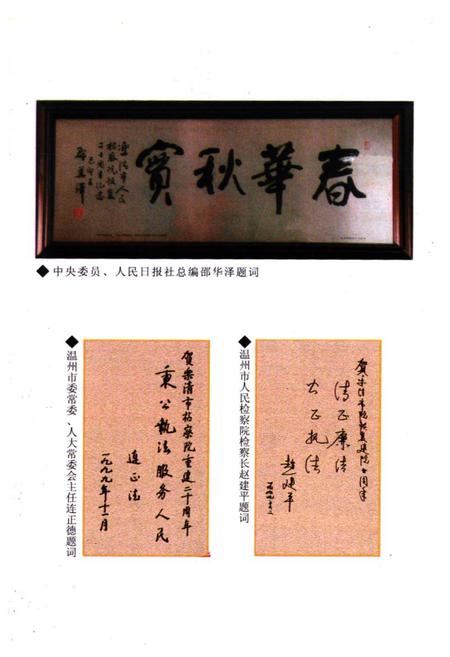 春華秋實
乐清市人民
检察院恢复
二十周年纪念
己卯年
邵華澤
◆中央委员、人民日报社总编邵华泽题词
◆温州市委常委、人大常委会主任连正德题词
贺乐清市检察院重建二十周年
秉公执法服务人民
连正德
一九九九年十二月
◆温州市人民检察院检察长赵建平题词
清正廉洁
公正执法
赵建平